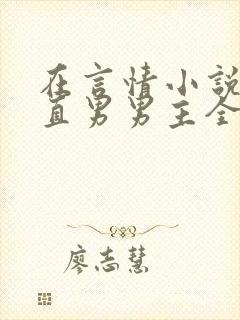 在言情小說
直男男主全
廖志慧